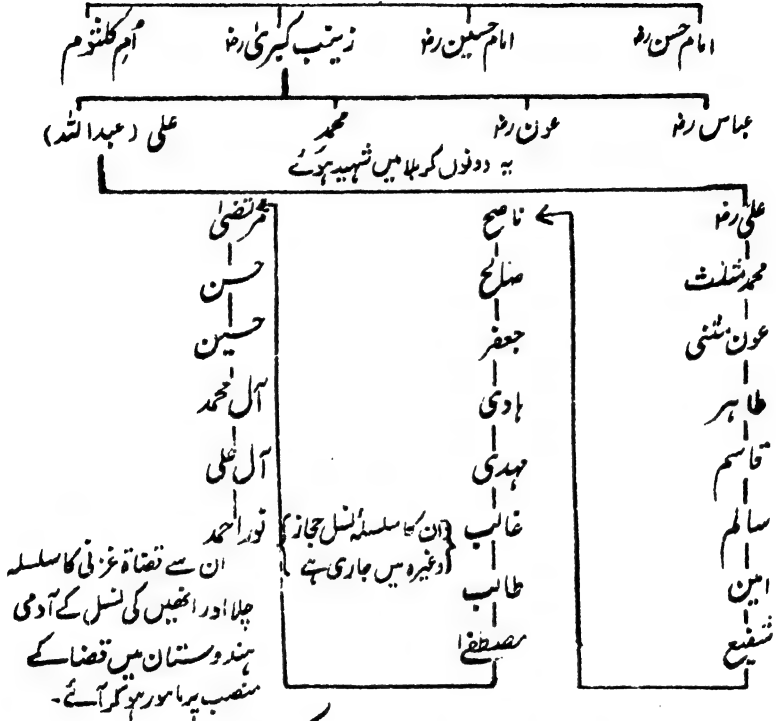 امام حسن رضہ امام حسین رضہ زینب کبریٰ رضہ اُم کلثوم
عباس رضہ عون رضہ محمد علی (عبداللہ)
یہ دونوں کربلا میں شہید ہوئے
علی رضہ
محمد مثلث
عون مثنی
طاہر
قاسم
سالم
امین
شفیع
ناصح
صالح
جعفر
ہادی
مہدی
غالب
طالب
مصطفےٰ
{ان کا سلسلۂ نسل حجاز}
{وغیرہ میں جاری ہے}
مرتضیٰ
حسن
حسین
آل محمد
آل علی
نور احمد
ان سے قضاۃ غزنی کا سلسلہ
چلا اور انھیں کی نسل کے آدمی
ہندوستان میں قضا کے
منصب پر مامور ہو کر آئے۔